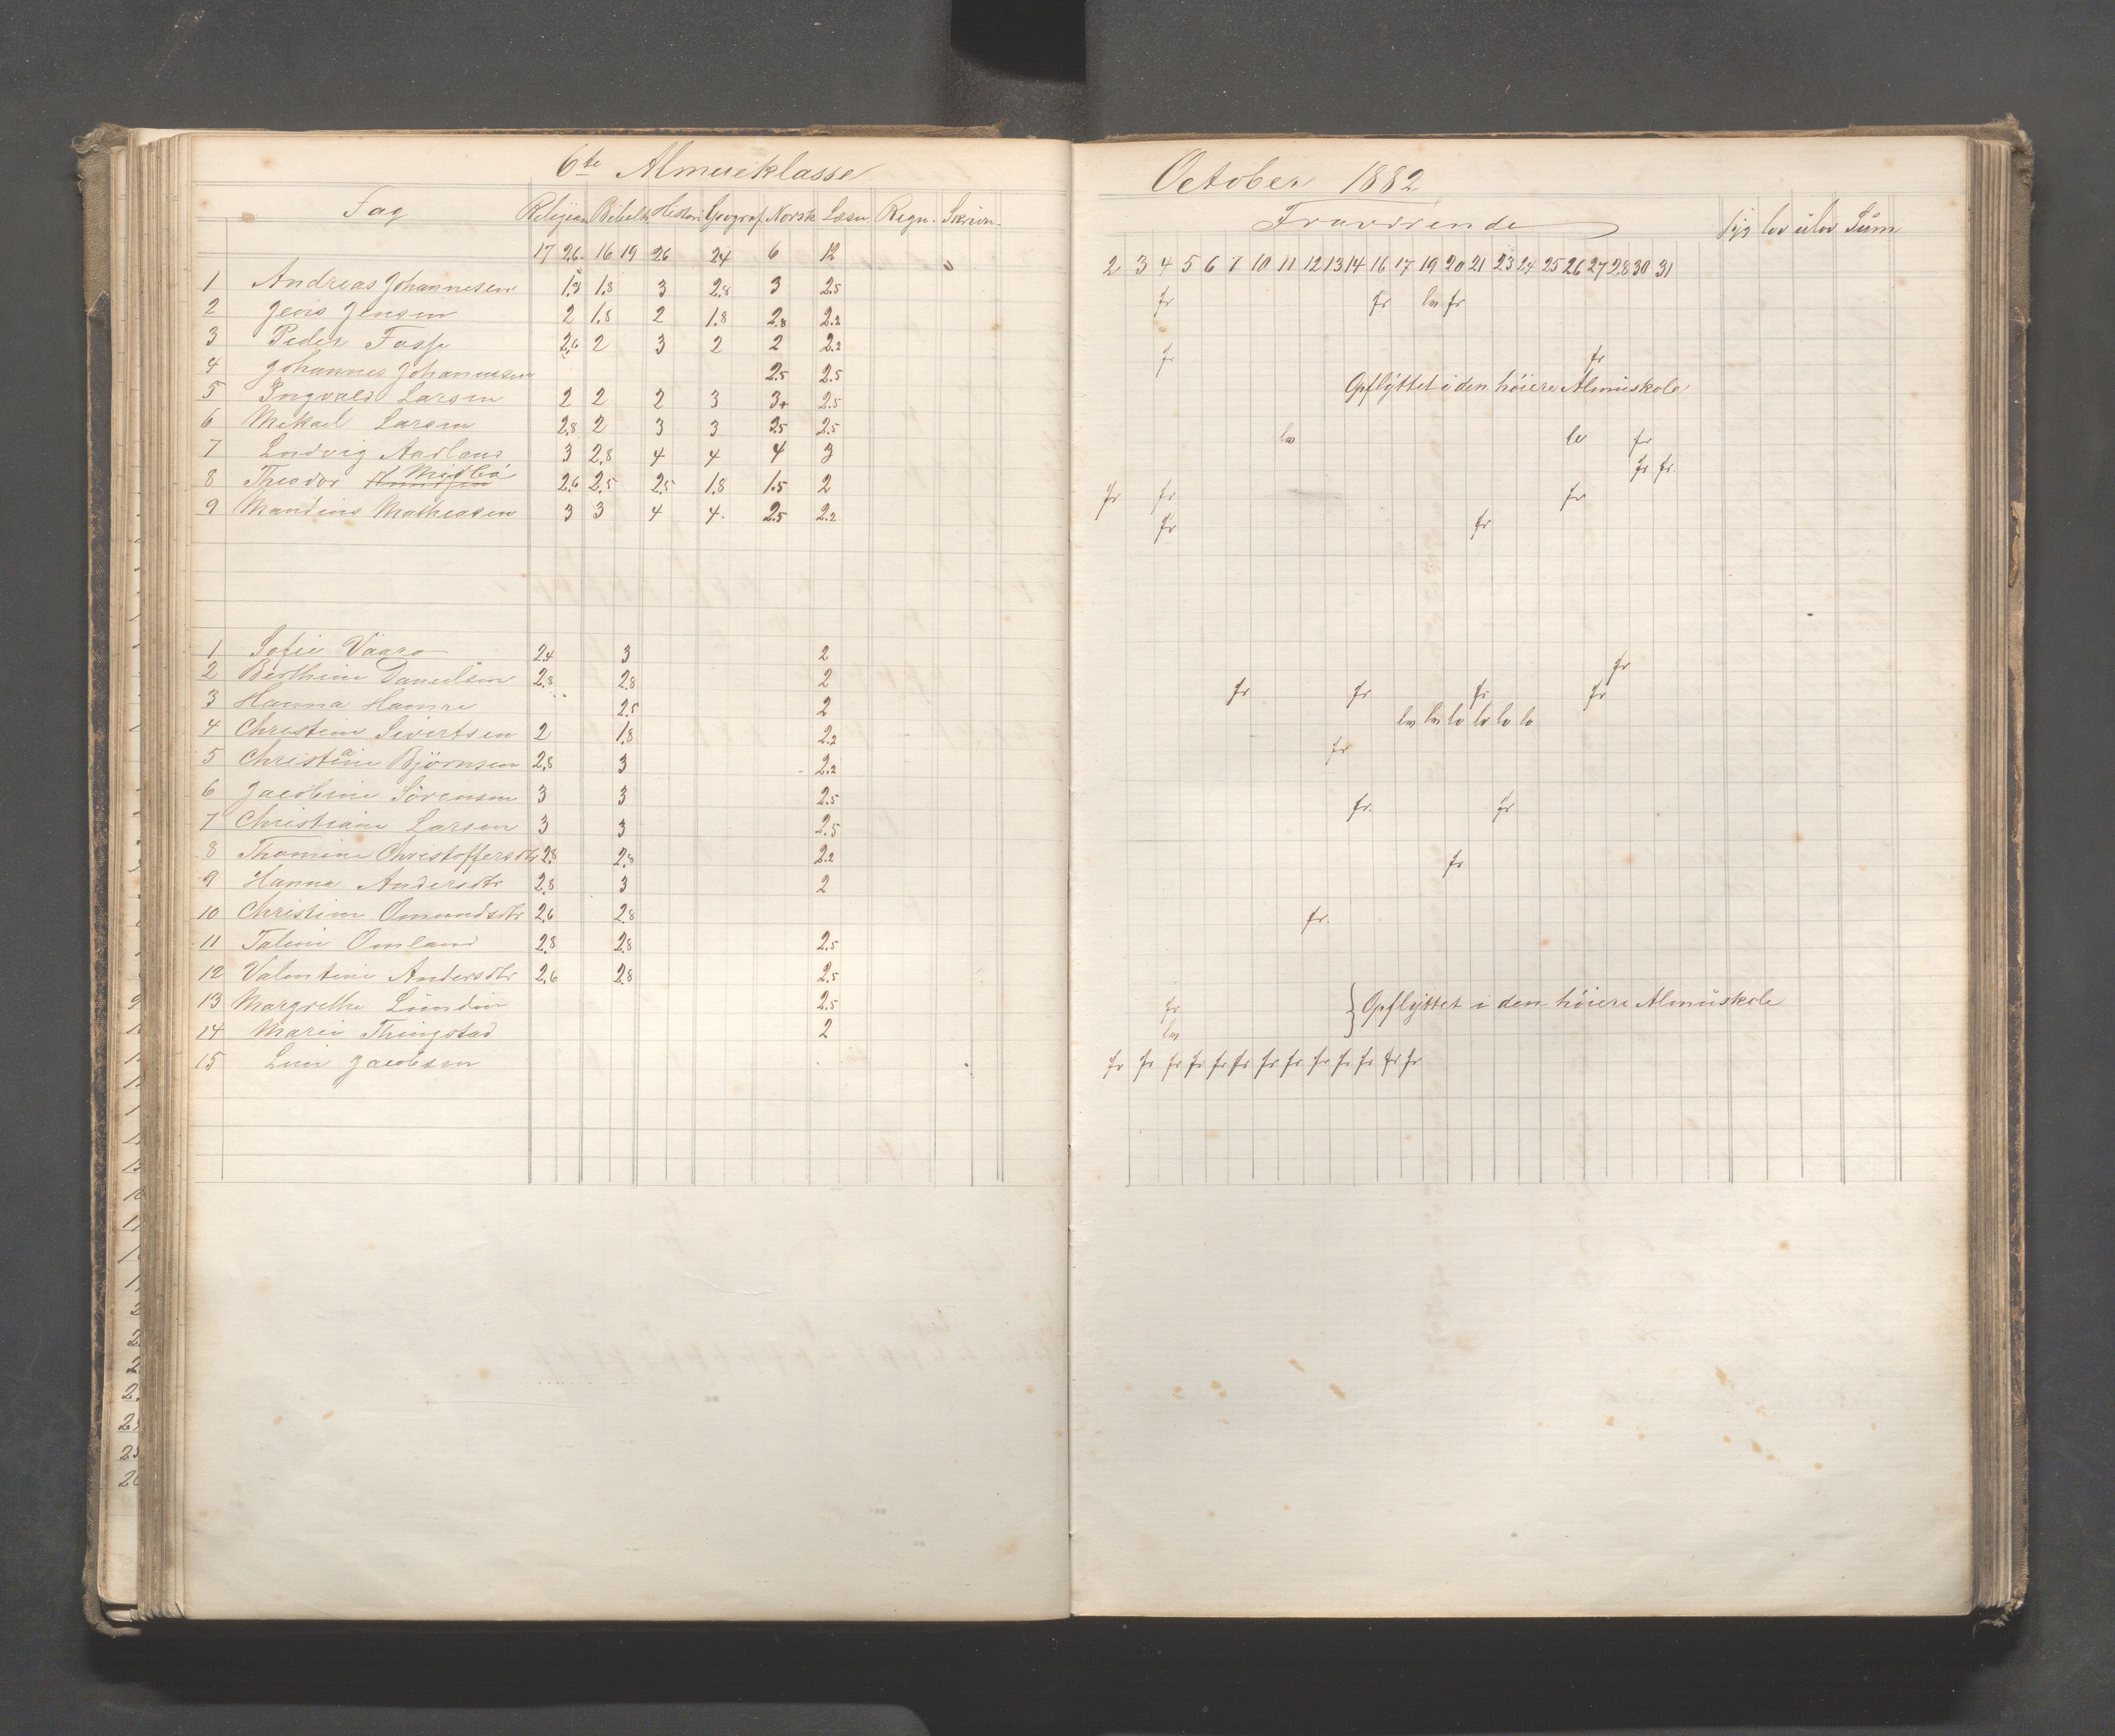 6te Almueklasse
Fag Religion Bibelh. Histori Geograf. Norsk Læsn. Regn. Skrivn.
17 26. 16 19 26 24 6 12
1 Andreas Johannesen 1.8 1.8 3 2.8 3 2.5
2 Jens Jensen 2 1.8 2 1.8 2.8 2.2
3 Peder Fosse 2.6 2 3 2 2 2.2
4 Johannes Johannesen 2.5 2.5
5 Ingvald Larsen 2 2 2 3 3+ 2.5
6 Mikael Larsen 2.8 2 3 3 2.5 2.5
7 Ludvig Aadland 3 2.8 4 4 4 3
8 Theodor Midbö 2.6 2.5 2.5 1.8 1.5 2
9 Mandius Mathiasen 3 3 4 4. 2.5 2.2
1 Sofie Vaara 2.4 3 2
2 Berthine Danielsen 2.8 2.8 2
3 Hanna Hamre 2.5 2
4 Christine Sivertsen 2 1.8 2.2
5 Christiane Björnsen 2.8 3 2.2
6 Jacobine Sörensen 3 3 2.5
7 Christiane Larsen 3 3 2.5
8 Thomine Christoffersdtr 2.8 2.8 2.2
9 Hanna Andersdtr 2.8 3 2
10 Christine Omundsdtr 2.6 2.8
11 Taline Omland 2.8 2.8 2.5
12 Valentine Andersdtr 2.6 2.8 2.5
13 Margrethe Lündin 2.5
14 Marie Thingstad 2
15 Line Jacobsen
October 1882
Fraværende syg lov ulov Süm
2 3 4 5 6 7 10 11 12 13 14 16 17 19 20 21 23 24 25 26 27 28 30 31
fr fr lov fr
fr fr
Opflÿttet i den höiere Almüskole
lov lov fr
fr fr.
fr fr fr
fr fr
fr
fr fr fr fr
lov lov lov lov lov lov
fr
fr. fr
fr
fr.
fr } Opflÿttet i den höiere Almüskole
lov
fr fr fr fr fr fr fr fr fr fr fr fr fr